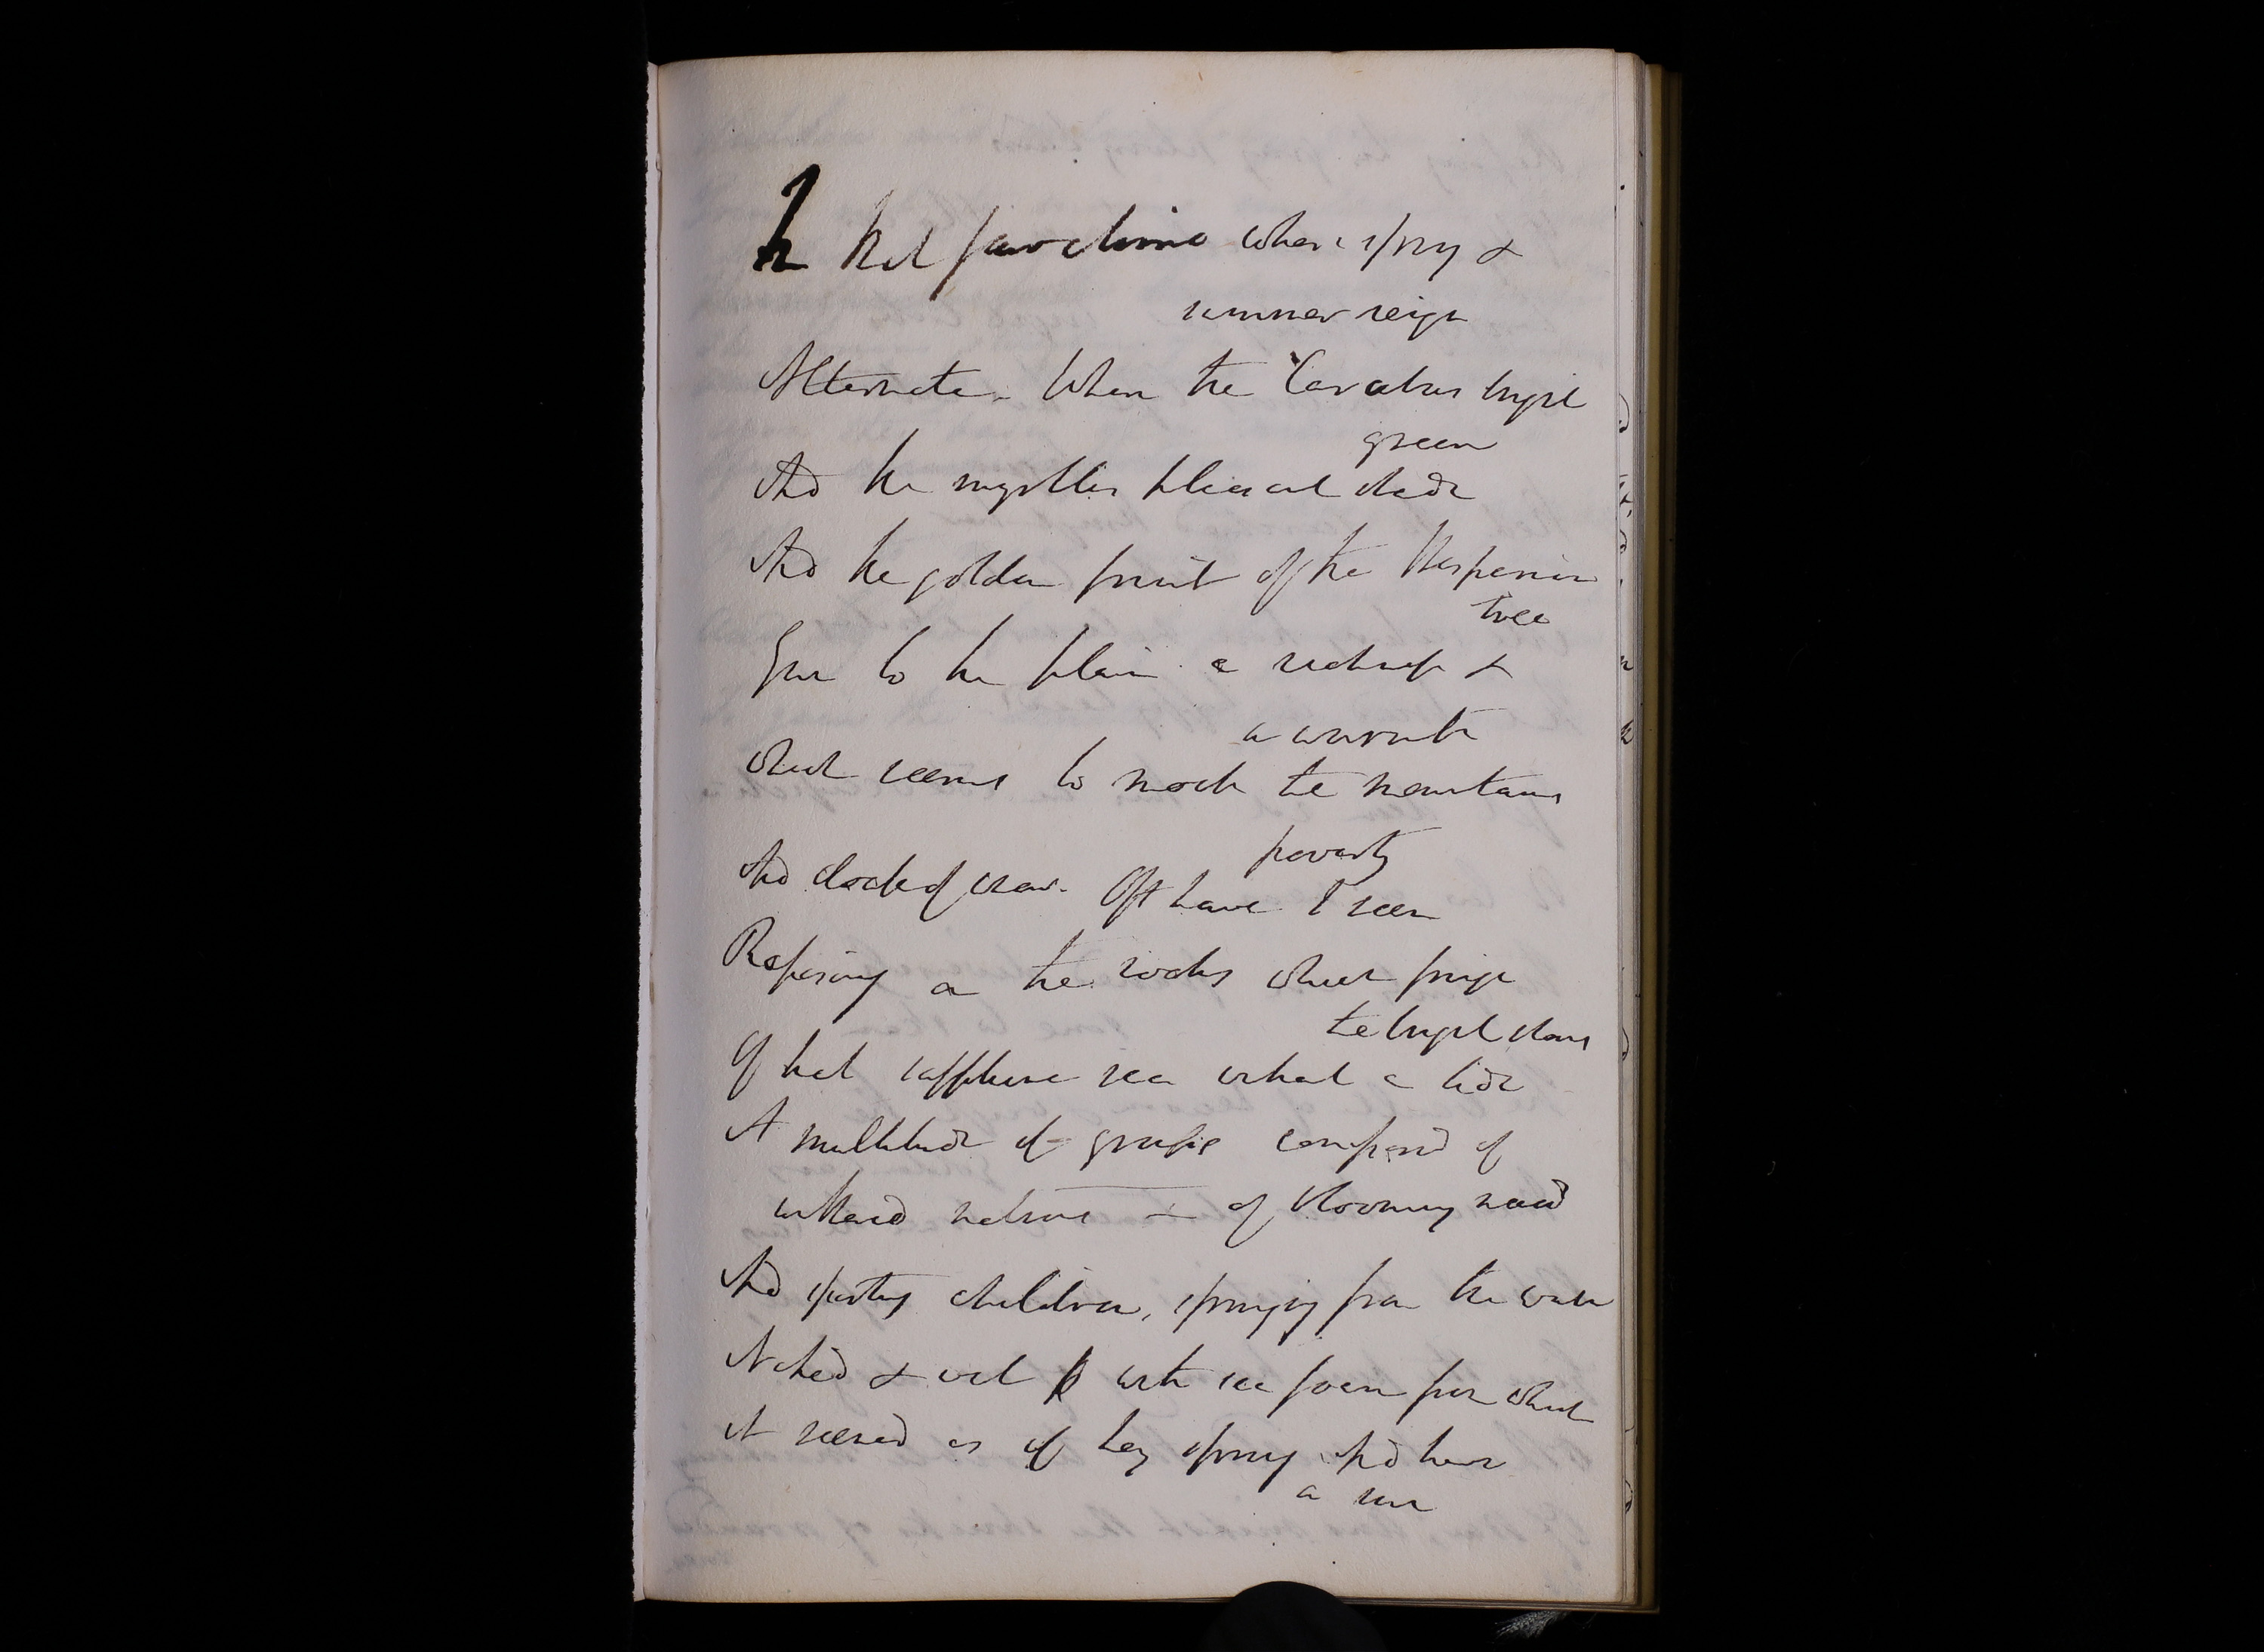 In that fair clime where spring &
summer reign
Alternate. When the Carabus bright
green
And the myrtles pleasant shade
And the golden fruit of the Hesperian
tree
Give to the plain a &
a warmth
which seems to mock the mountains
poverty
And cloak of snow. Oft have I seen
Reposing on the rocks which fringe
the bright shores
Of that sapphire sea what a tide
A multitude of groups composed of
withered matrons & of blooming maids
And sporting children, springing from the water
Naked & wet with sea foam from which
it seemed as if they sprung and have
a